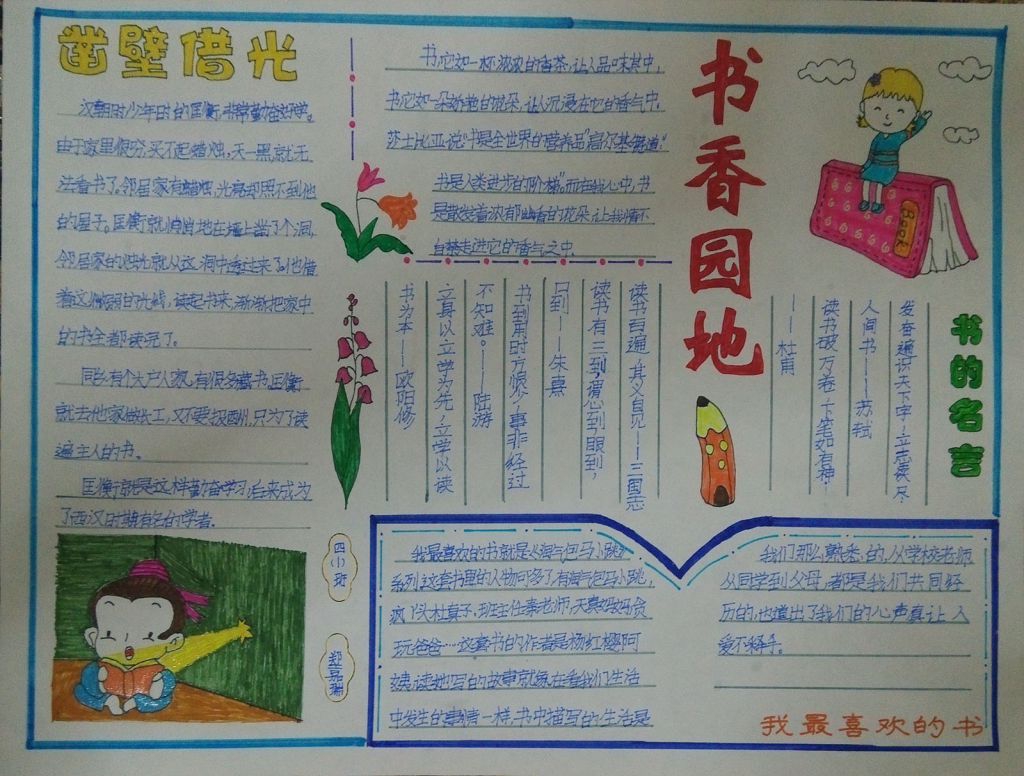 凿壁借光
汉朝时少年时的匡衡,非常勤奋好学。
由于家里很穷,买不起蜡烛,天一黑就无
法看书了。邻居家有蜡烛,光亮却照不到他
的屋子。匡衡就悄悄地在墙上凿了个洞,
邻居家的烛光就从这洞中透过来了。他借
着这微弱的光线,读起书来,渐渐把家中
的书全都读完了。
同乡有个大户人家,有很多藏书。匡衡
就去他家做长工,又不要报酬,只为了读
遍主人的书。
匡衡就是这样勤奋学习,后来成为
了西汉时期有名的学者.
四(1)班
书,它如一杯浓浓的香茶,让人品味其中,
书,它如一朵娇艳的花朵,让人沉浸在它的香气中.
莎士比亚说"书是全世界的营养品"高尔基知道"
书是人类进步的阶梯"。而在我心中,书
是散发着浓郁幽香的花朵,让我情不
自禁走进它的香气之中.
书香园地
Book
书的名言
发奋通识天下字,立志读尽
人间书——苏轼
读书破万卷,下笔如有神·
——杜甫
读书百遍,其义自见——三国志
读书有三到,谓心到眼到,
口到——朱熹
书到用时方恨少,事非经过
不知难。——陆游
立身以立学为先,立学以读
书为本——欧阳修
我最喜欢的书就是《淘气包马小跳》
系列,这套书里的人物可多了,有淘气包马小跳,
疯丫头杜真子,班主任秦老师,天真妈妈贪
玩爸爸……这套书的作者是杨红樱阿
姨,读她写的故事就像在看我们生活
中发生的事情一样,书中描写的生活是
我们那么熟悉的,从学校老师
从同学到父母,都是我们共同经
历的,也道出了我们的心声真让人
爱不释手。
我最喜欢的书